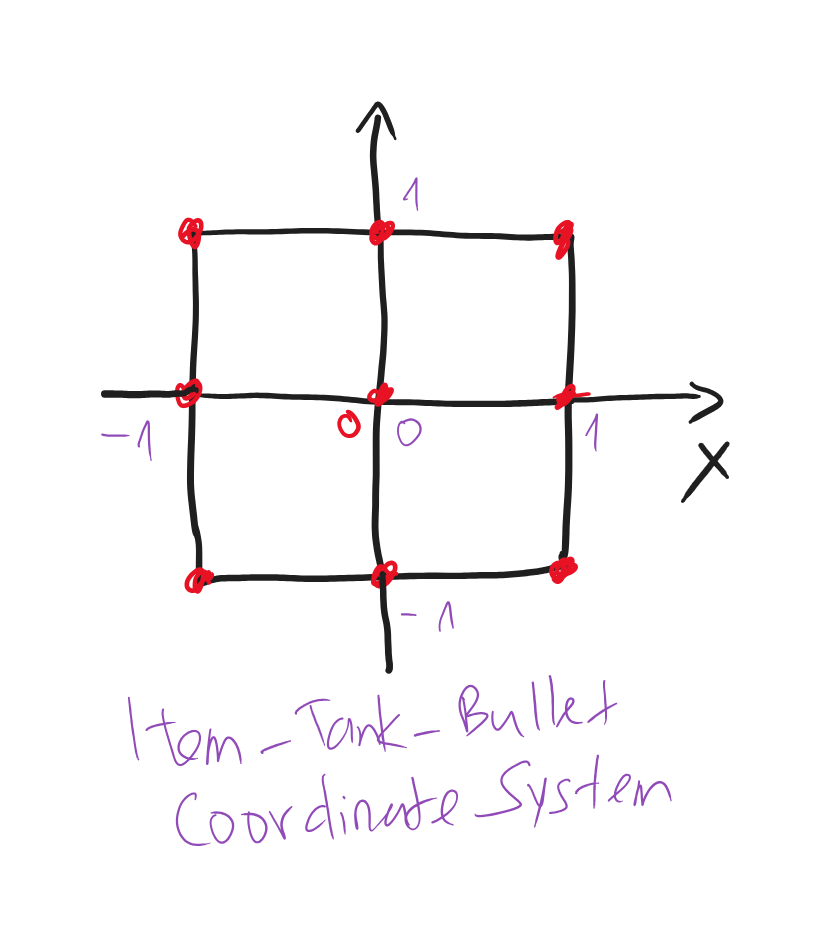 1
-1
0
0
1
X
-1
Item-Tank-Bullet
Coordinate System